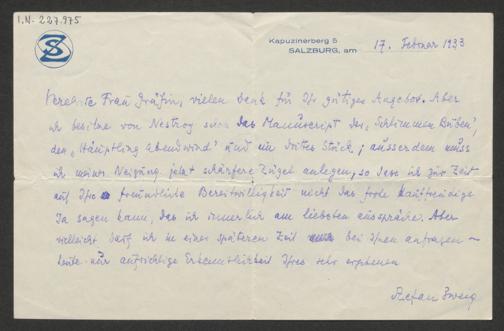 I.N. 227.975
SZ
Kapuzinerberg 5
SALZBURG, am 17. Februar 1933
Verehrte Frau Gräfin, vielen Dank für Ihr gütiges Angebot. Aber
ich besitze von Nestroy schon das Manuscript der „Schlimmen Buben",
den „Häuptling Abendwind" und ein drittes Stück; ausserdem muss
ich meiner Neigung jetzt schärfere Zügel anlegen, so dass ich zur Zeit
auf Ihre freundliche Bereitwilligkeit nicht das frohe kauffreudige
Ja sagen kann, das ich innerlich am liebsten ausspräche. Aber
vielleicht darf ich in einer späteren Zeit bei Ihnen anfragen –
heute nur aufrichtige Erkenntlichkeit Ihres sehr ergebenen
Stefan Zweig